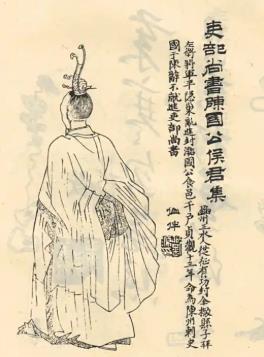 吏部尚書陳國公侯君集
豳州三水人從征有功封全椒縣子拜
左衛將軍平隱巢亂進封潞國公食邑千戶貞觀十年命為陳州刺史
國于陳辭不就進吏部尚書